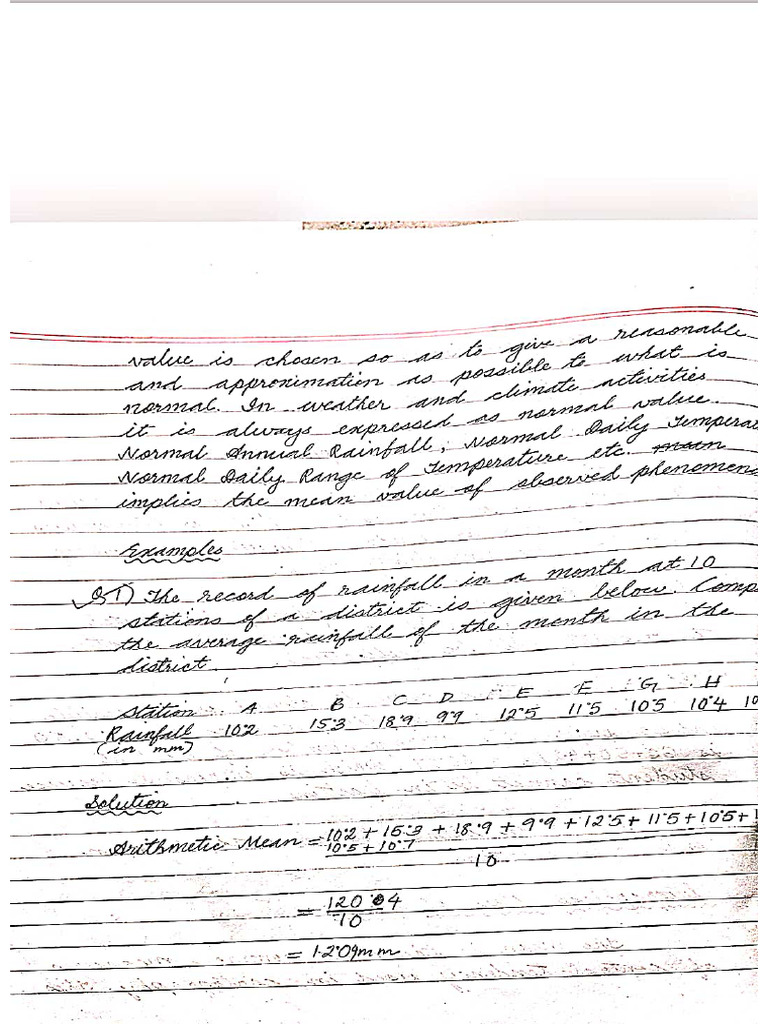 value is chosen so as to give a reasonable
and approximation as possible to what is
normal. In weather and climate activities
it is always expressed as normal value.
Normal Annual Rainfall, Normal Daily Tempera
Normal Daily Range of Temperature etc. mean
implies the mean value of observed phenomena
Examples
Q1) The record of rainfall in a month at 10
stations of a district is given below. Comp
the average rainfall of the month in the
district.
Station A B C D E F G H
Rainfall 10.2 15.3 18.9 9.9 12.5 11.5 10.5 10.4 10
(in mm)
Solution
Arithmetic Mean = 10.2 + 15.3 + 18.9 + 9.9 + 12.5 + 11.5 + 10.5 + 1
10.5 + 10.7
10
= 120.4
10
= 12.09mm